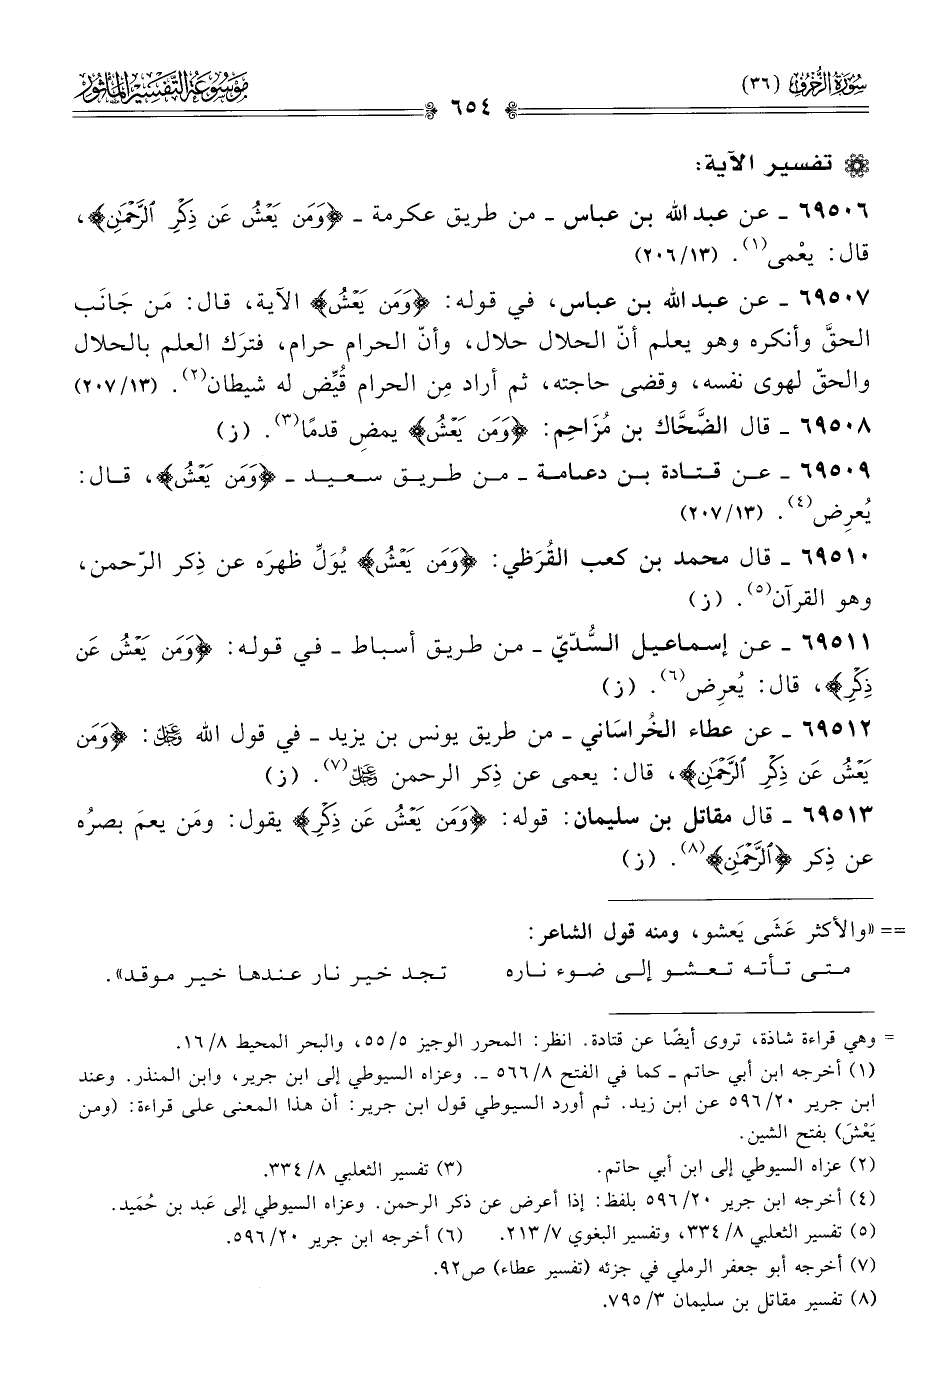 سُورَةُ الزُّخْرُفِ (٣٦)
٦٥٤
مَوْسُوعَةُ التَّفْسِيْرِ المَأْثُوْرِ
تفسير الآية:
٦٩٥٠٦ ـ عن عبد الله بن عباس ـ من طريق عكرمة ـ ﴿وَمَن يَعْشُ عَن ذِكْرِ ٱلرَّحْمَٰنِ﴾،
قال: يعْمى(١). (٢٠٦/١٣)
٦٩٥٠٧ ـ عن عبد الله بن عباس، في قوله: ﴿وَمَن يَعْشُ﴾ الآية، قال: مَن جَانَب
الحقَّ وأنكره وهو يعلم أنّ الحلال حلال، وأنّ الحرام حرام، فترَك العلم بالحلال
والحقّ لهوى نفسه، وقضى حاجته، ثم أراد مِن الحرام قُيِّض له شيطان(٢). (٢٠٧/١٣)
٦٩٥٠٨ ـ قال الضَّحَّاك بن مُزَاحِم: ﴿وَمَن يَعْشُ﴾ يمضِ قدمًا(٣). (ز)
٦٩٥٠٩ ـ عن قتادة بن دعامة ـ من طريق سعيد ـ ﴿وَمَن يَعْشُ﴾، قال:
يُعرِض(٤). (٢٠٧/١٣)
٦٩٥١٠ ـ قال محمد بن كعب القُرَظي: ﴿وَمَن يَعْشُ﴾ يُوَلِّ ظهرَه عن ذِكر الرّحمن،
وهو القرآن(٥). (ز)
٦٩٥١١ ـ عن إسماعيل السُّدّيّ ـ من طريق أسباط ـ في قوله: ﴿وَمَن يَعْشُ عَن
ذِكْرِ﴾، قال: يُعرِض(٦). (ز)
٦٩٥١٢ ـ عن عطاء الخُراسَاني ـ من طريق يونس بن يزيد ـ في قول الله ﷿: ﴿وَمَن
يَعْشُ عَن ذِكْرِ ٱلرَّحْمَٰنِ﴾، قال: يعمى عن ذِكر الرحمن ﷿(٧). (ز)
٦٩٥١٣ ـ قال مقاتل بن سليمان: قوله: ﴿وَمَن يَعْشُ عَن ذِكْرِ﴾ يقول: ومَن يعمَ بصرُه
عن ذِكر ﴿ٱلرَّحْمَٰنِ﴾(٨). (ز)
== «والأكثر عَشَى يَعشو، ومنه قول الشاعر:
متى تأته تعشو إلى ضوء ناره تجد خير نار عندها خير موقد».
= وهي قراءة شاذة، تروى أيضًا عن قتادة. انظر: المحرر الوجيز ٥/ ٥٥، والبحر المحيط ٨/ ١٦.
(١) أخرجه ابن أبي حاتم ـ كما في الفتح ٨/ ٥٦٦ ـ. وعزاه السيوطي إلى ابن جرير، وابن المنذر. وعند
ابن جرير ٢٠/ ٥٩٦ عن ابن زيد. ثم أورد السيوطي قول ابن جرير: أن هذا المعنى على قراءة: (ومن
يَعْشَ) بفتح الشين.
(٢) عزاه السيوطي إلى ابن أبي حاتم. (٣) تفسير الثعلبي ٨/ ٣٣٤.
(٤) أخرجه ابن جرير ٢٠/ ٥٩٦ بلفظ: إذا أعرض عن ذكر الرحمن. وعزاه السيوطي إلى عَبد بن حُمَيد.
(٥) تفسير الثعلبي ٨/ ٣٣٤، وتفسير البغوي ٧/ ٢١٣. (٦) أخرجه ابن جرير ٢٠/ ٥٩٦.
(٧) أخرجه أبو جعفر الرملي في جزئه (تفسير عطاء) ص٩٢.
(٨) تفسير مقاتل بن سليمان ٣/ ٧٩٥.